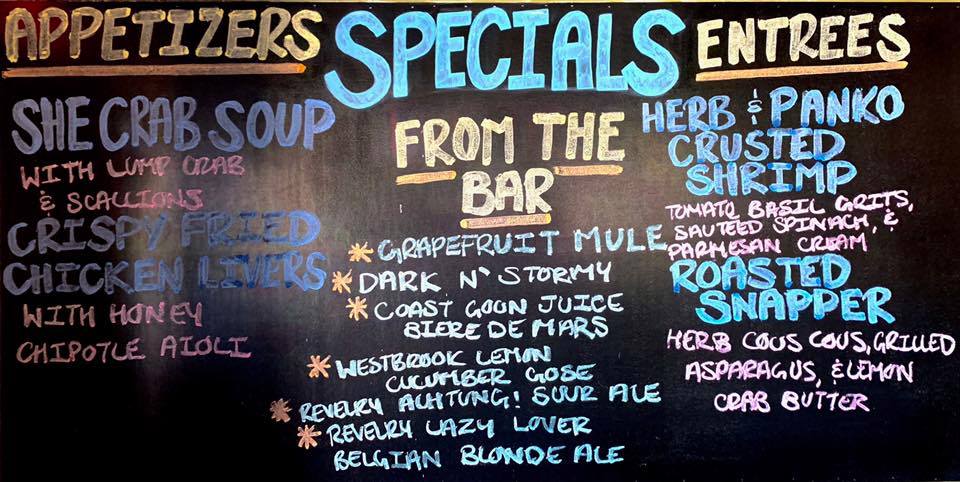 APPETIZERS
SHE CRAB SOUP
WITH LUMP CRAB
& SCALLIONS
CRISPY FRIED
CHICKEN LIVERS
WITH HONEY
CHIPOTLE AIOLI
SPECIALS
FROM THE
BAR
* GRAPEFRUIT MULE
* DARK N' STORMY
* COAST GOON JUICE
BIERE DE MARS
* WESTBROOK LEMON
CUCUMBER GOSE
* REVELRY ACHTUNG! SOUR ALE
* REVELRY LAZY LOVER
BELGIAN BLONDE ALE
ENTREES
HERB & PANKO
CRUSTED
SHRIMP
TOMATO BASIL GRITS,
SAUTEED SPINACH, &
PARMESAN CREAM
ROASTED
SNAPPER
HERB COUS COUS, GRILLED
ASPARAGUS, & LEMON
CRAB BUTTER